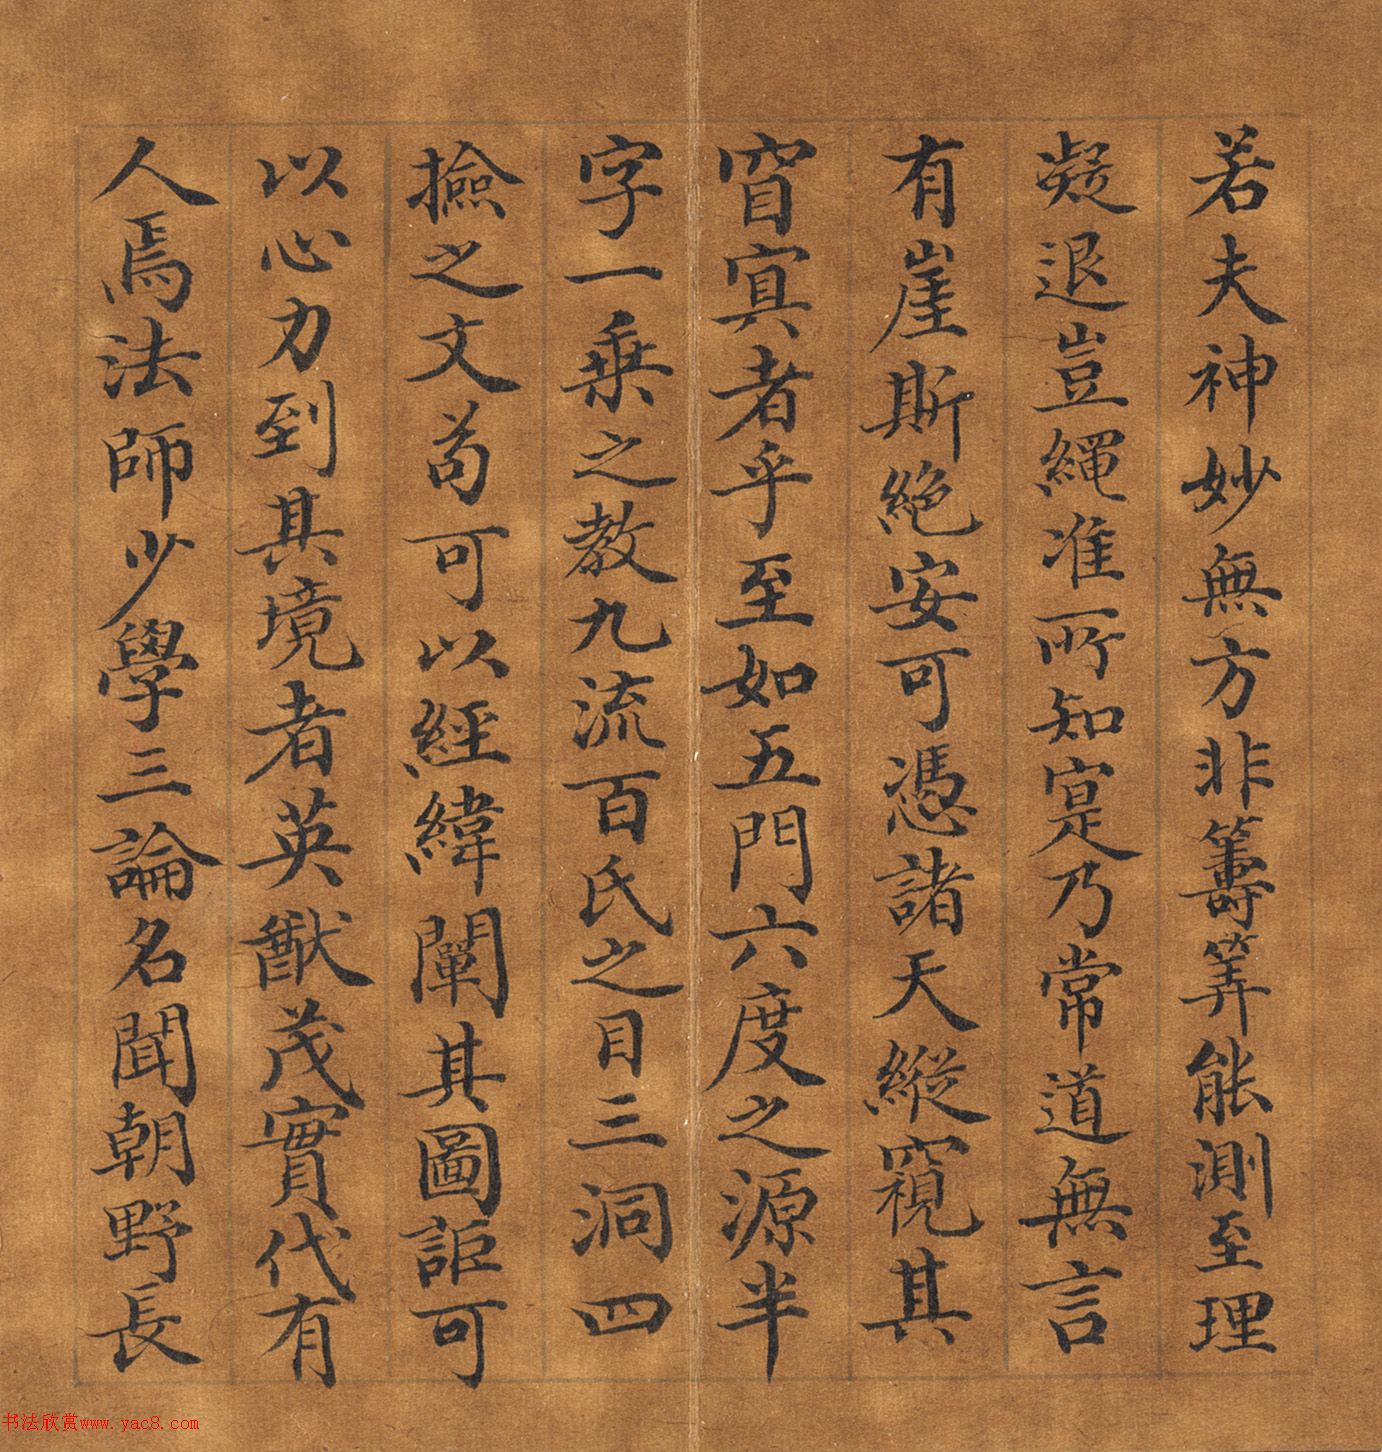 若夫神妙無方非籌筭能測至理
凝邈豈繩准所知寔乃常道無言
有崖斯絕安可憑諸天縱窺其
窅冥者乎至如五門六度之源半
字一乘之教九流百氏之目三洞四
撿之文苟可以經緯闡其圖詎可
以心力到其境者英猷茂實代有
人焉法師少學三論名聞朝野長
书法欣赏www.yac8.com